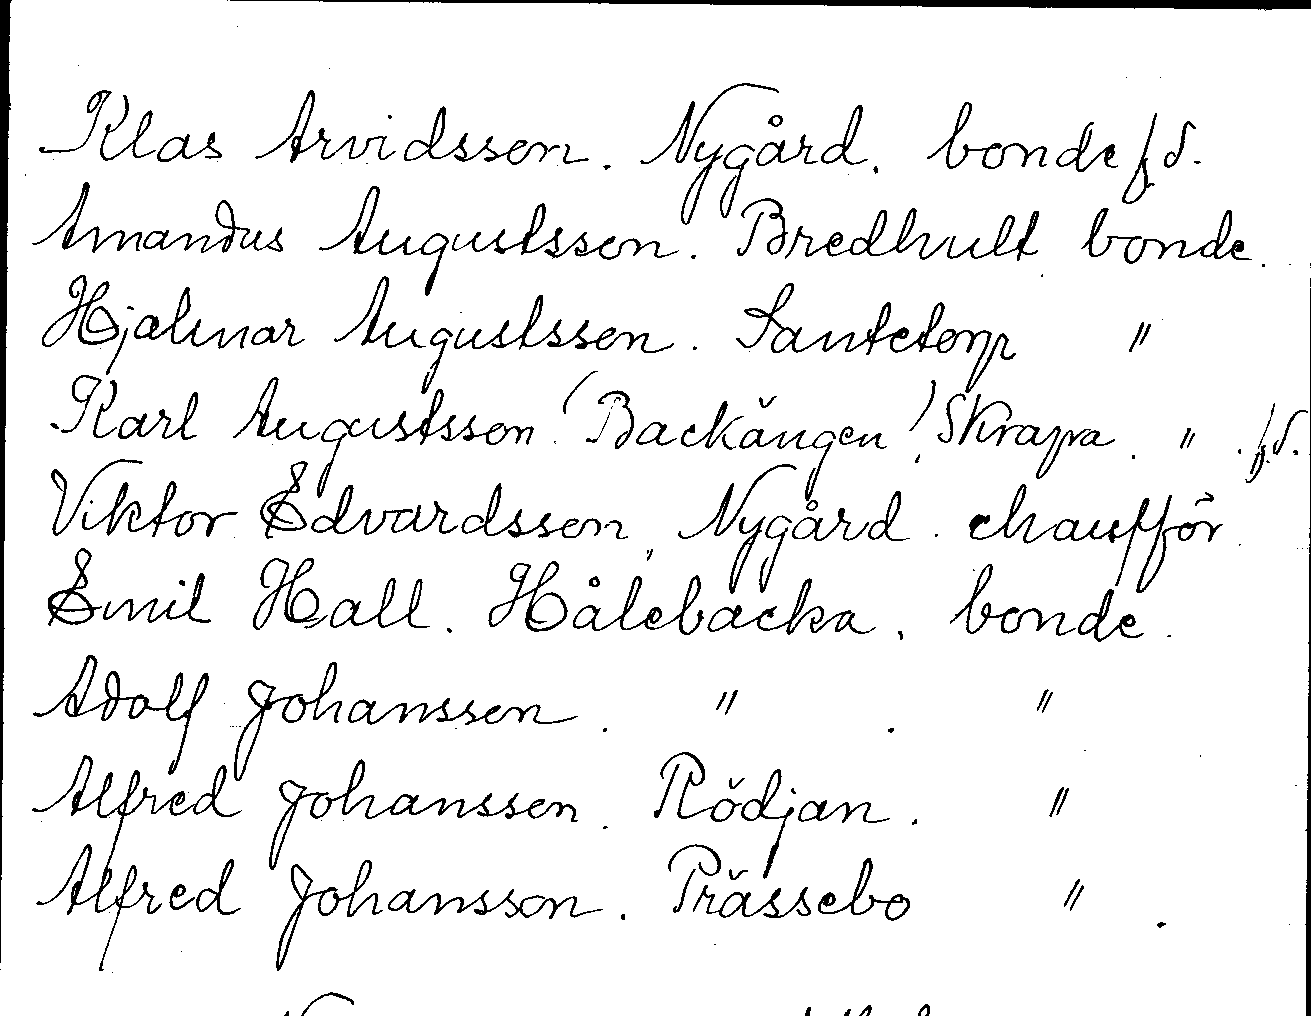 Klas Arvidsson. Nygård. bonde f.d.
Amandus Augustsson. Bredhult bonde.
Hjalmar Augustsson. Santetorp "
Karl Augustsson. (Backängen) Skrapa. " . f.d.
Viktor Edvardsson, Nygård. chaufför.
Emil Hall. Hålebacka. bonde.
Adolf Johansson. " . "
Alfred Johansson. Rödjan. "
Alfred Johansson. Prässebo " .